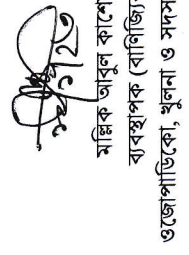 মল্লিক আবুল কাশে
ব্যবস্থাপক (বাণিজ্যি
ওজোপাডিকো, খুলনা ও সদস